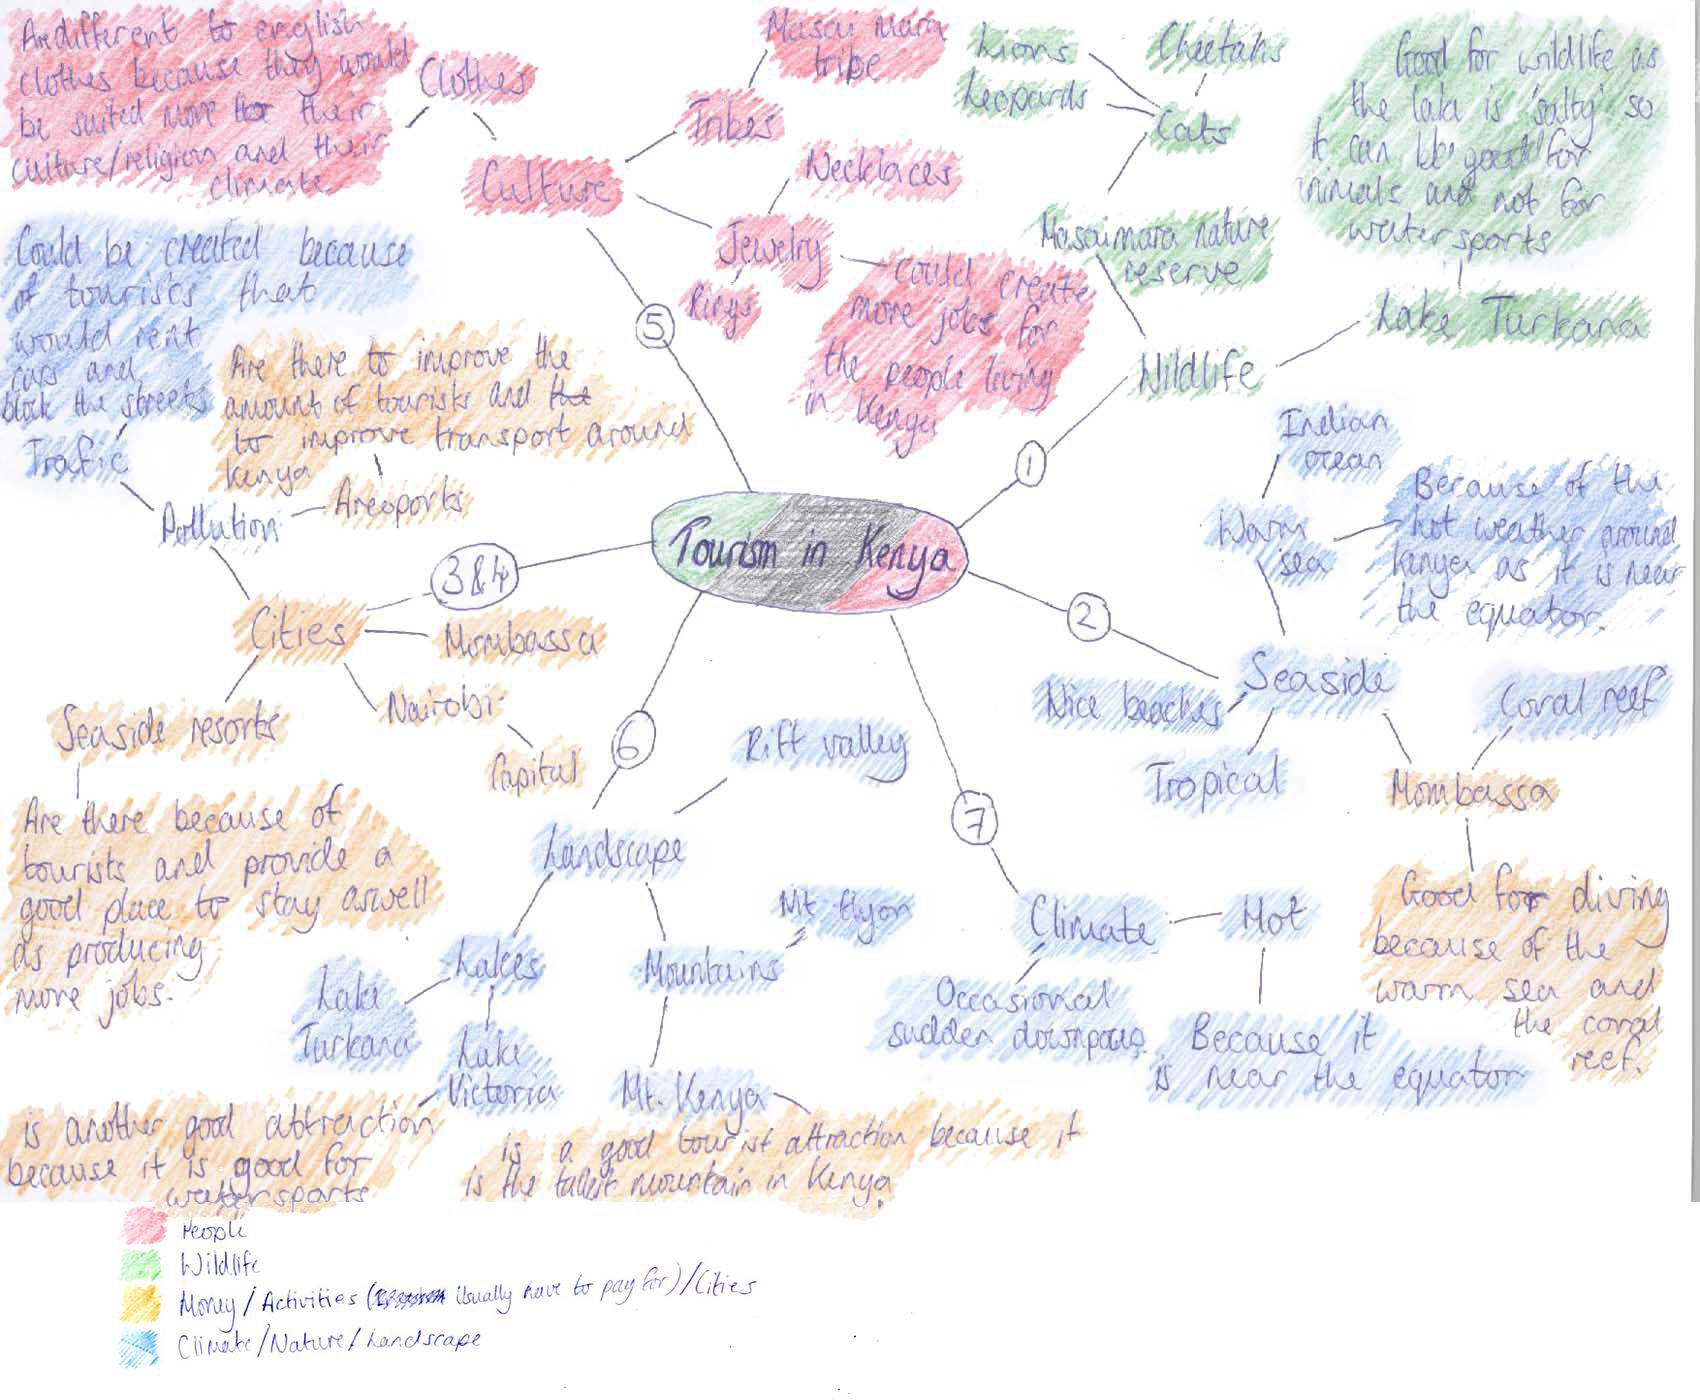 Tourism in Kenya
1
Wildlife
Masaimara nature
reserve
Cats
Lions
Leopards
Cheetahs
Lake Turkana
Good for wildlife as
the lake is 'salty' so
it can be good for
animals and not for
watersports
2
Seaside
Warm
sea
Indian
ocean
Because of the
hot weather around
Kenya as it is near
the equator.
Nice beaches
Tropical
Mombassa
Coral reef
Good for diving
because of the
warm sea and
the coral
reef.
3&4
Cities
Pollution
Trafic
Could be created because
of tourists that
would rent
cars and
block the streets
Areoports
Are there to improve the
amount of tourists and that
to improve transport around
Kenya
Mombassa
Nairobi
Capital
Seaside resorts
Are there because of
tourists and provide a
good place to stay aswell
as producing
more jobs.
5
Culture
Clothes
Are different to english
clothes because they would
be suited more to their
culture/religion and their
climate
Tribes
Masai Mara
tribe
Jewelry
Necklaces
Rings
could create
more jobs for
the people living
in Kenya
6
Landscape
Rift valley
Lakes
Lake
Turkana
Lake
Victoria
is another good attraction
because it is good for
watersports
Mountains
Mt Elgon
Mt. Kenya
is a good tourist attraction because it
is the tallest mountain in Kenya.
7
Climate
Hot
Because it
is near the equator
Occasional
sudden downpours.
People
Wildlife
Money/Activities (usually have to pay for)/Cities
Climate/Nature/Landscape